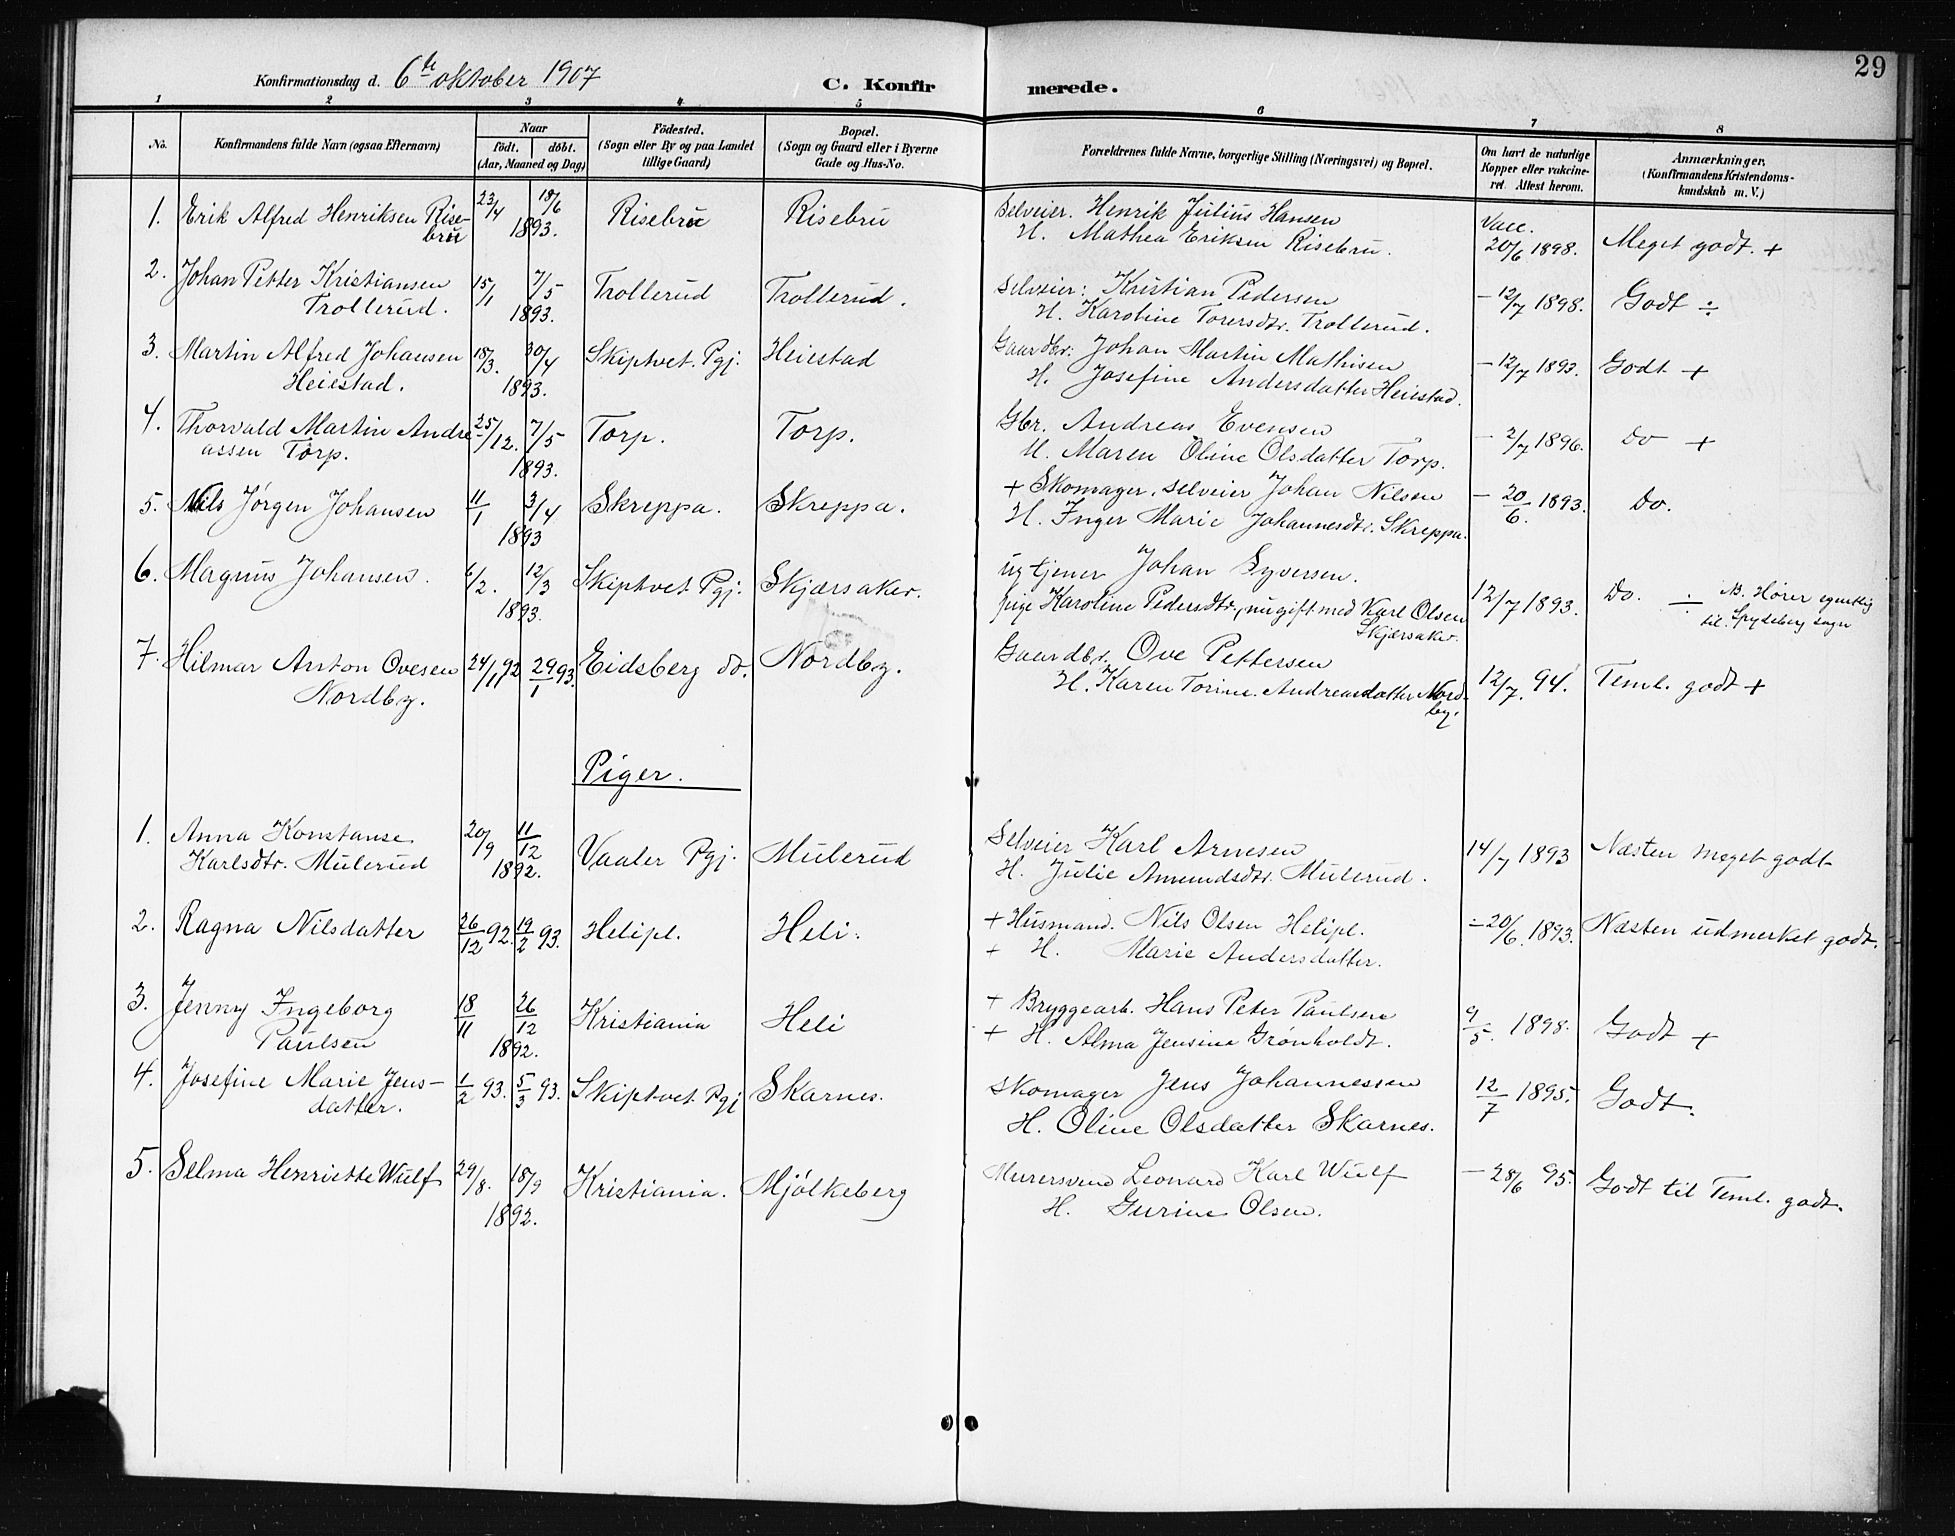 29
Konfirmationsdag d. 6te oktober 1907
C. Konfirmerede.
1 2 3 4 5 6 7 8
No. | Konfirmandens fulde Navn (ogsaa Efternavn) | Naar födt. döbt. (Aar, Maaned og Dag) | Födested. (Sogn eller By og paa Landet tillige Gaard) | Bopæl. (Sogn og Gaard eller i Byerne Gade og Hus-No. | Forældrenes fulde Navne, borgerlige Stilling (Næringsvei) og Bopæl. | Om havt de naturlige Kopper eller vakcineret. Attest herom. | Anmærkninger, (Konfirmandens Kristendomskundskab m. V.)
1. Erik Alfred Henriksen Rise- 23/4 18/6 Risebru Risebru Selveier. Henrik Julius Hansen Vacc.
bru 1893. H. Mathea Eriksen Risebru. 20/6 1898. Meget godt. +
2. Johan Petter Kristiansen 15/1 7/5 Trollerud Trollerud. Selveier: Kristian Pedersen – 12/7 1898. Godt ÷
Trollerud. 1893. H. Karoline Torersdtr. Trollerud.
3. Martin Alfred Johansen 18/3. 30/4 Skiptvet. Pgj: Heiestad Gaardbr: Johan Martin Mathisen – 12/7 1893. Godt +
Heiestad. 1893. H. Josefine Andersdatter Heiestad.
4. Thorvald Martin Andre- 25/12. 7/5 Torp. Torp. Gbr. Andreas Evensen – 2/7 1896. do +
assen Torp. 1893. H. Maren Oline Olsdatter Torp.
5. Nils Jørgen Johansen 11/1 3/4 Skreppa. Skreppa. + Skomager, selveier Johan Nilsen – 20/6. 1893. Do.
1893 H. Inger Marie Johannesdtr. Skreppa.
6. Magnus Johansen. 6/2. 12/3 Skiptvet Pgj: Skjærsaker. ug tjener Johan Syversen. 12/7 1893. Do. ÷ NB. Hører egentlig
1893. pige Karoline Pedersdtr., nu gift med Karl Olsen til Spydeberg sogn
Skjærsaker.
7. Hilmar Anton Ovesen 24/11 92 29/1 93. Eidsberg do. Nordby. Gaardbr. Ove Pettersen 12/7. 94. Teml. godt +
Nordby. H. Karen Torine Andreasdatter Nord-
by.
Piger.
1. Anna Konstanse 20/9 11/12 Vaaler Pgj. Mulerud Selveier Karl Arnesen 14/7 1893 Næsten meget godt
Karlsdtr. Mulerud 1892. H. Julie Amundsdtr. Mulerud.
2. Ragna Nilsdatter 26/12 92. 19/2 93. Helipl. Heli. + Husmand. Nils Olsen Helipl. – 20/6. 1893. Næsten udmerket godt.
+ H. Marie Andersdatter.
3. Jenny Ingeborg 18/11 26/12 Kristiania Heli + Bryggearb. Hans Peter Paulsen 9/5. 1898. Godt +
Paulsen 1892. + H. Alma Jensine Grønholdt.
4. Josefine Marie Jens- 1/2 93. 5/3 93. Skiptvet Pgj Skarnes. Skomager Jens Johannessen 12/7 1895. Godt.
datter. H. Oline Olsdatter Skarnes.
5. Selma Henriette Wulf 29/8. 18/9 Kristiania. Mjölkeberg Murersvend Leonard Karl Wulf – 28/6 95. Godt til Teml. godt.
1892. H. Gurine Olsen.